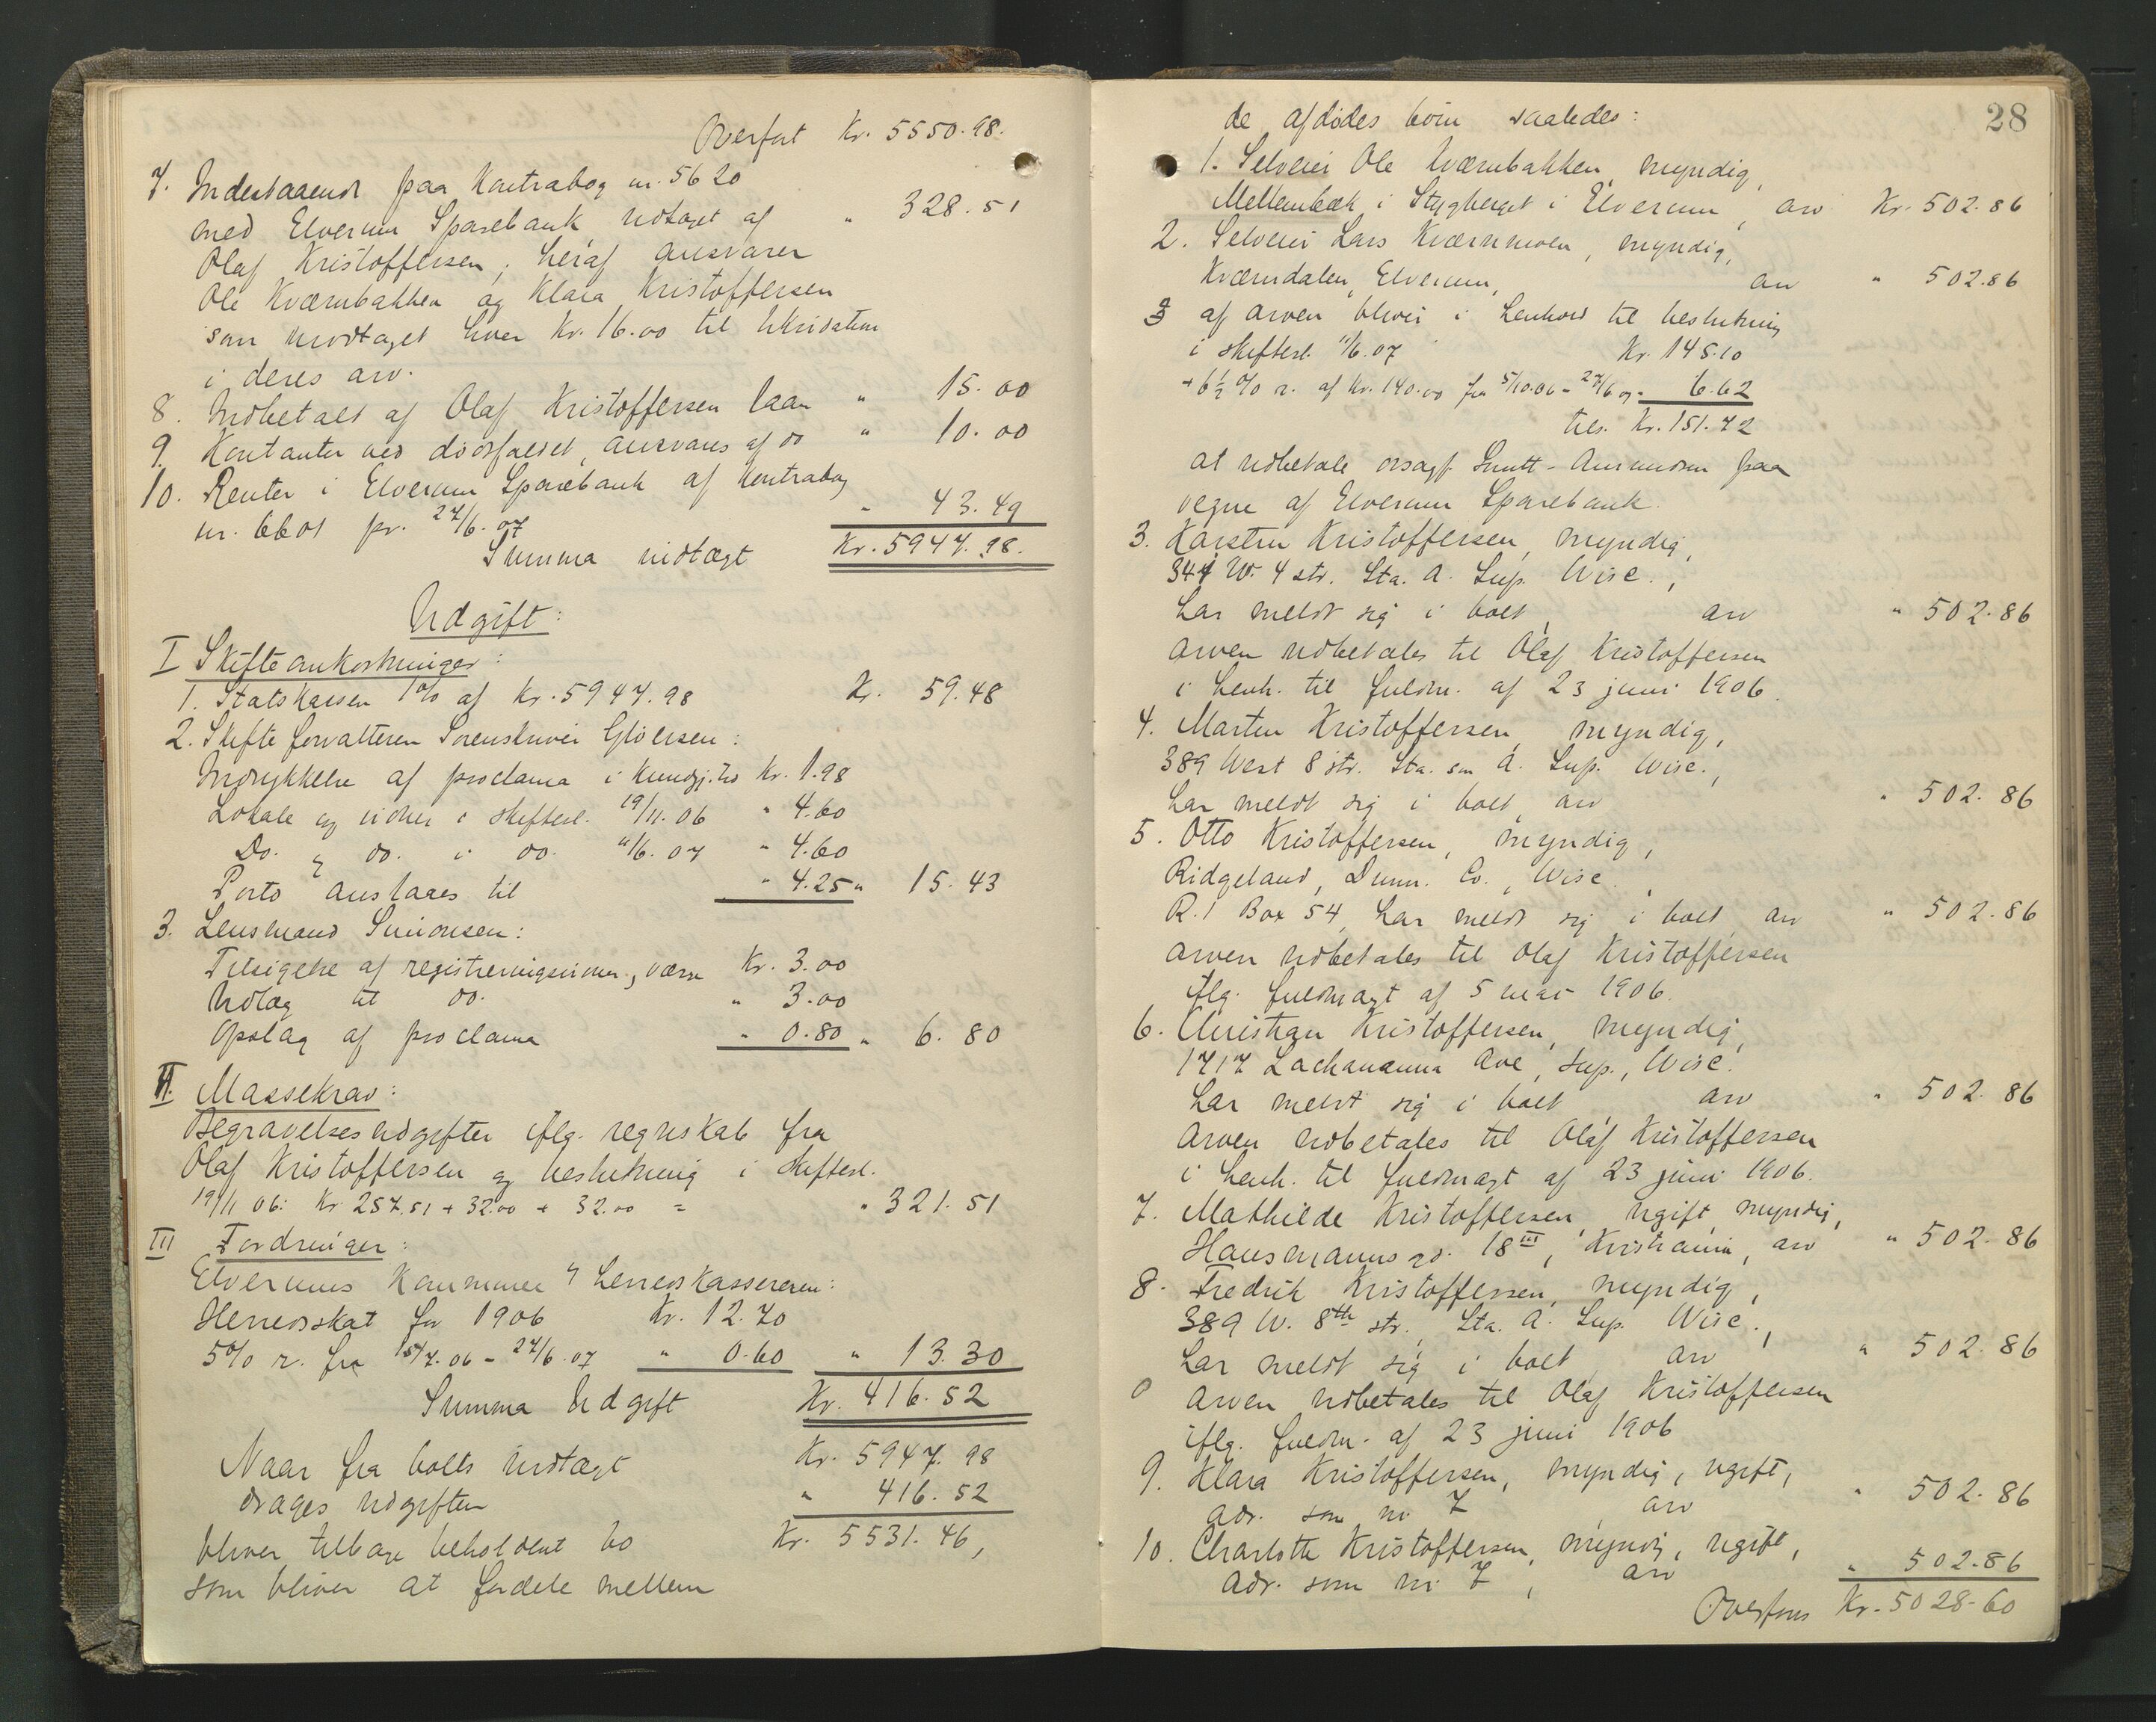 Overført Kr. 5550.98.
7. Indestaaende paa Kontrabog nr. 5620
med Elverum Sparebank udtaget af " 328.51
Olaf Kristoffersen, heraf ansvarer
Ole Kværnbakken og Klara Kristoffersen
som modtaget hver Kr. 16.00 til likvidation
i deres arv.
8. Indbetalt af Olaf Kristoffersen laan " 15.00
9. Kontanter ved dødsfaldet, ansvares af do " 10.00
10. Renter i Elverum Sparebank af Kontrabog
nr. 6601 pr. 27/6.07 " 43.49
Summa indtægt Kr. 5947.98.
Udgift:
I Skifteomkostninger:
1. Statskassen 1% af Kr. 5947.98 Kr. 59.48
2. Skifteforvalteren Sorenskriver Gløersen:
Indrykkelse af proclama i Kundgj.tid Kr. 1.98
Lokale og vidner i skiftesl. 19/11.06 " 4.60
Do. og do. i do. 11/6.07 " 4.60
Porto anslaaes til " 4.25 " 15.43
3. Lensmand Simonsen:
Tilsigelse af registreringsvidner, værn Kr. 3.00
Udlæg til do. " 3.00
Opslag af proclama " 0.80 " 6.80
II. Massekrav:
Begravelsesudgifter iflg. regnskab fra
Olaf Kristoffersen og beslutning i skiftesl.
19/11 06: Kr 257.51 + 32.00 + 32.00 = " 321.51
III Fordringer:
Elverums Kommune v/ herredskassereren:
Herredsskat for 1906 Kr. 12.70
5% r. fra 15/7.06 - 27/6.07 " 0.60 " 13.30
Summa Udgift Kr. 416.52
Naar fra boets indtægt Kr. 5947.98
drages udgiften " 416.52
bliver tilbage beholdent bo Kr. 5531.46,
som bliver at fordele mellem
28
de afdødes børn saaledes:
1. Selveier Ole Kværnbakken, myndig,
Mellembæk i Stygberget i Elverum, arv Kr. 502.86
2. Selveier Lars Kværnmoen, myndig,
Kværndalen, Elverum, arv " 502.86
af arven bliver i henhold til beslutning
i skiftesl. 11/6.07 Kr. 145.10
+ 6½ % r. af Kr. 140.00 fra 5/10.06 - 27/6 07 " 6.62
tils. Kr. 151.72
at udbetale orsagf. Smitt-Amundsen paa
vegne af Elverum Sparebank.
3. Karsten Kristoffersen, myndig,
344 W. 4 str. Sta. A. Sup. Wisc.,
har meldt sig i boet, arv " 502.86
Arven udbetales til Olaf Kristoffersen
i henh. til fuldm. af 23 juni 1906.
4. Marten Kristoffersen, myndig,
389 West 8 str. Sta. A. Sup. Wisc.,
har meldt sig i boet, arv " 502.86
5. Otto Kristoffersen, myndig,
Ridgeland, Dunn. Co., Wisc.,
R.1 Box 54, har meldt sig i boet, arv " 502.86
Arven udbetales til Olaf Kristoffersen
iflg. fuldmagt af 5 mai 1906.
6. Christian Kristoffersen, myndig,
1717 Lachananna Ave, Sup., Wisc.
har meldt sig i boet arv " 502.86
Arven udbetales til Olaf Kristoffersen
i henh. til fuldmagt af 23 juni 1906.
7. Mathilde Kristoffersen, ugift, myndig,
Hausmanns gd. 18 III, Kristiania, arv " 502.86
8. Fredrik Kristoffersen, myndig,
389 W. 8th str., Sta. A. Sup. Wisc.,
har meldt sig i boet, arv " 502.86
Arven udbetales til Olaf Kristoffersen
iflg. fuldm. af 23 juni 1906
9. Klara Kristoffersen, myndig, ugift,
adr. som nr 7 arv " 502.86
10. Charlotte Kristoffersen, myndig, ugift,
adr. som nr. 7, arv " 502.86
Overføres Kr. 5028.60